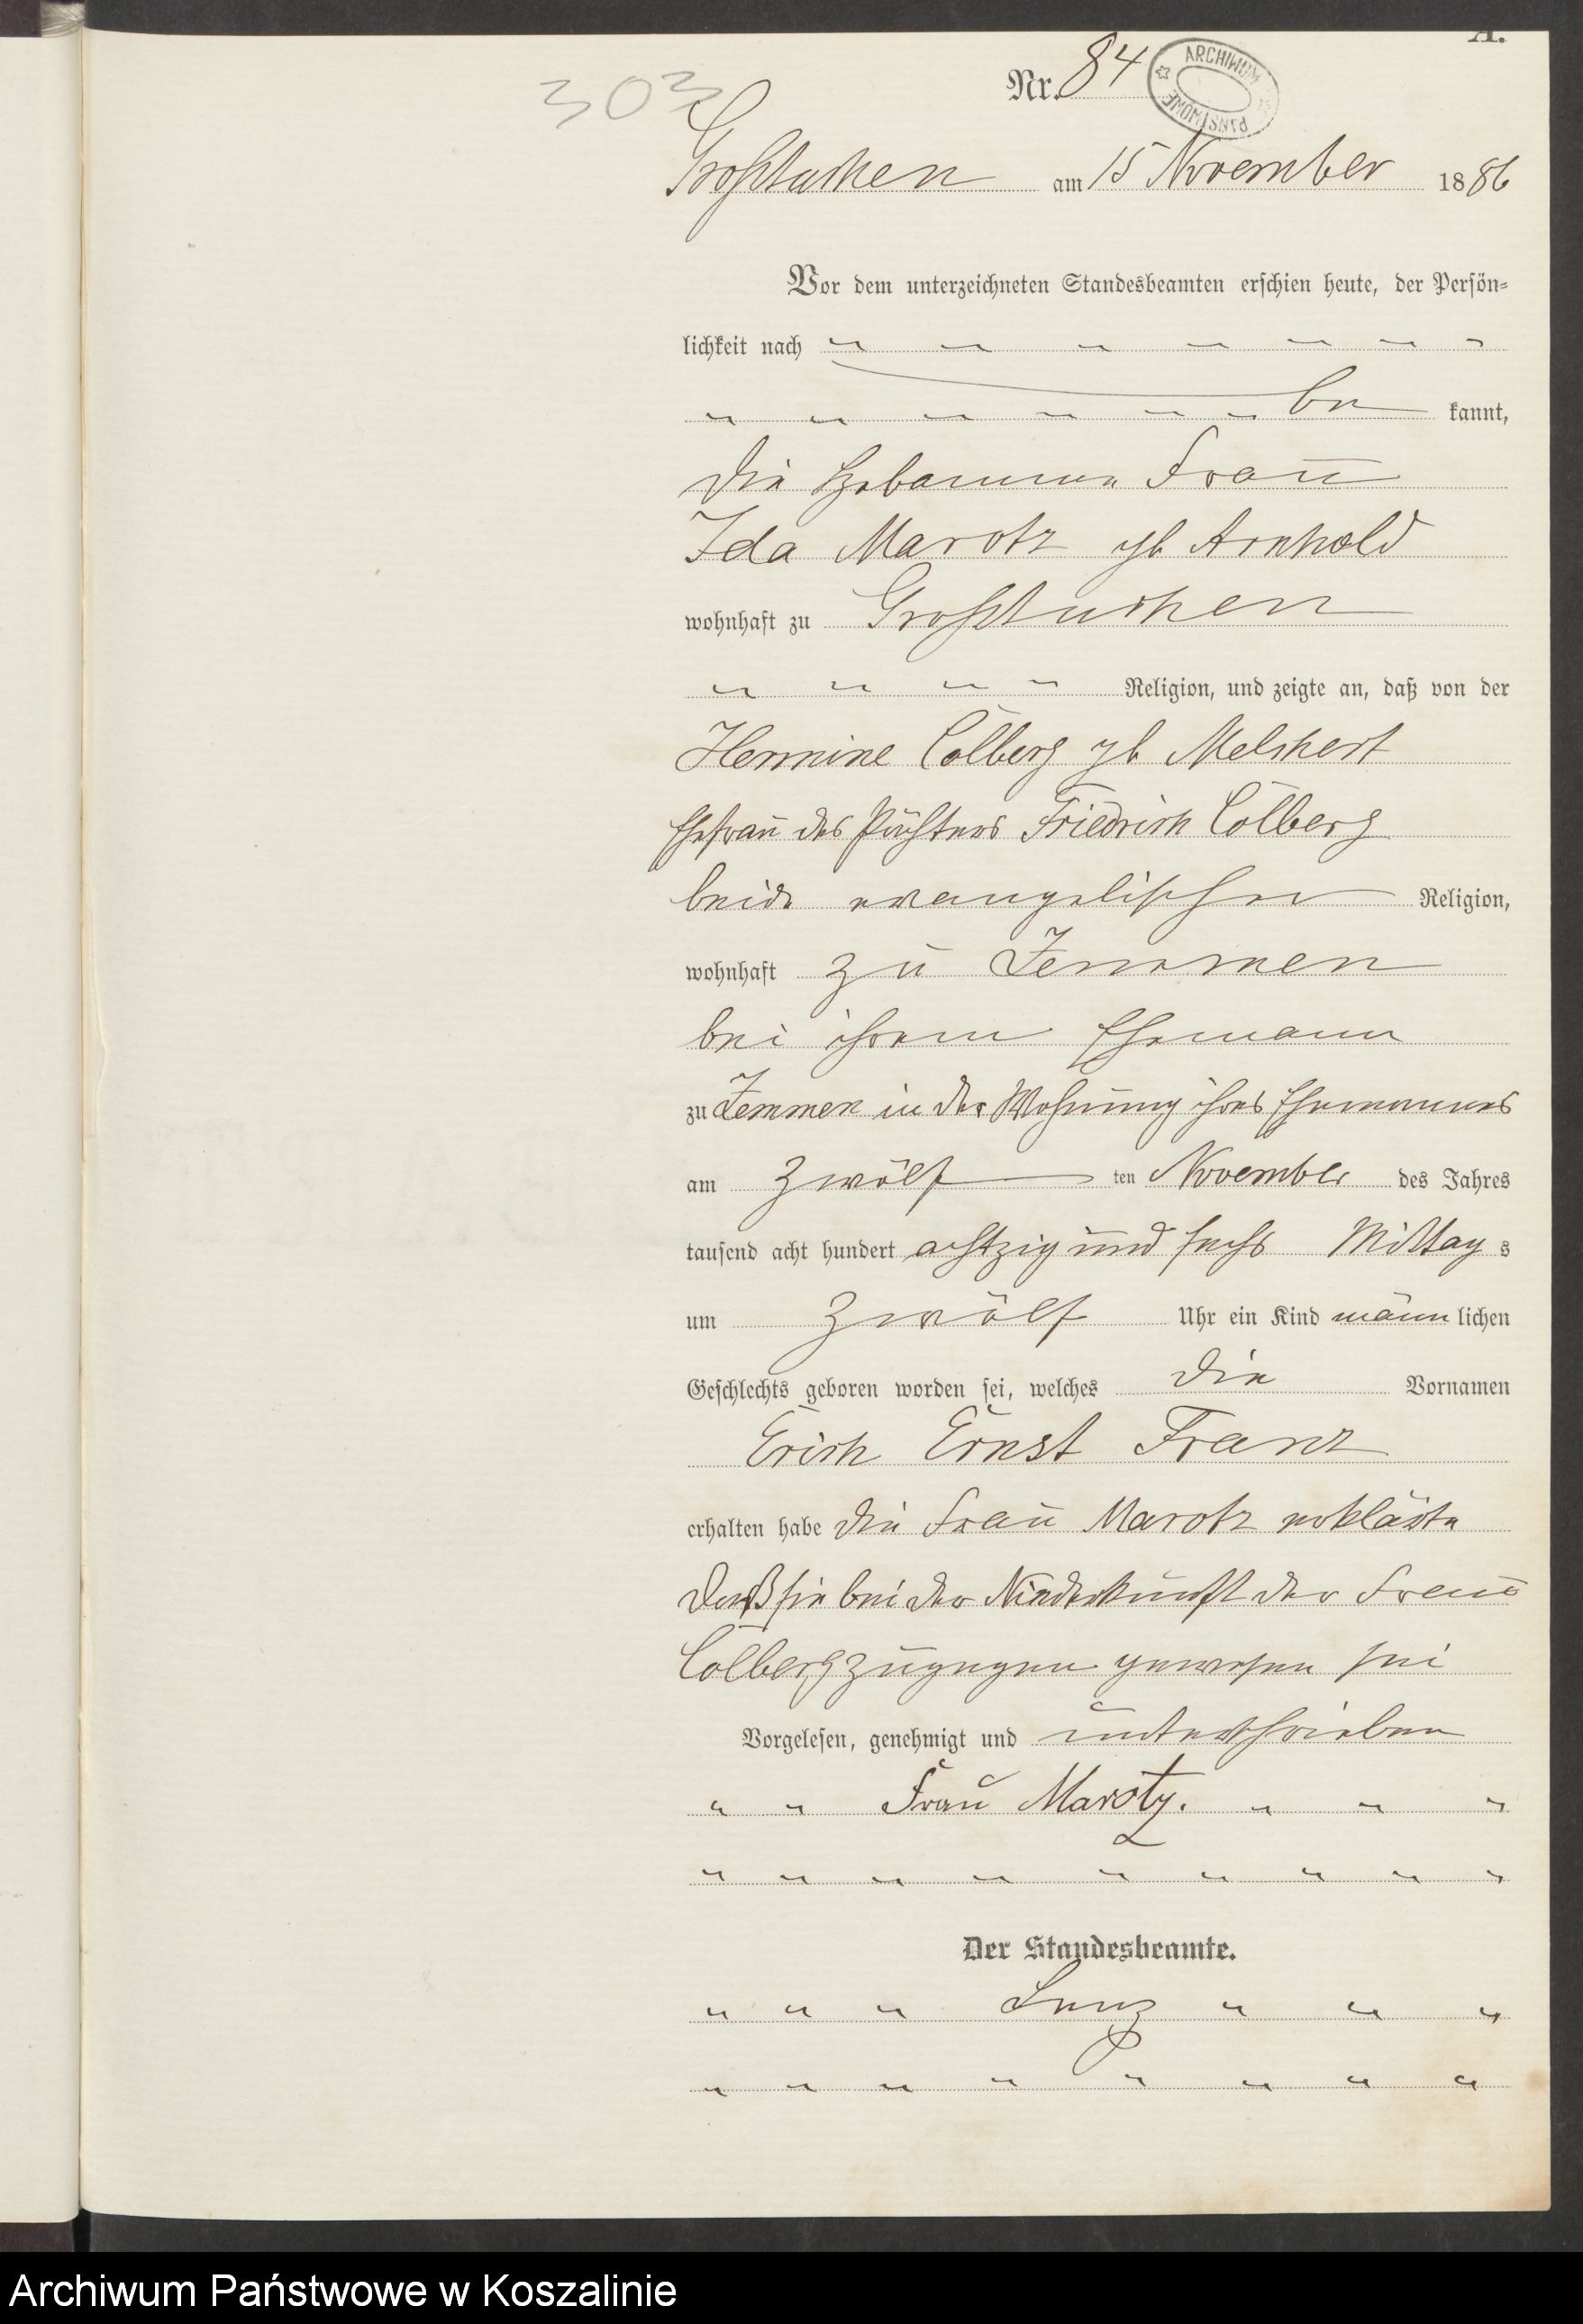 A.
303
Nr. 84
ARCHIWUM PAŃSTWOWE
Großtuchen am 15 November 1886
Vor dem unterzeichneten Standesbeamten erschien heute, der Persön-
lichkeit nach
be kannt,
die Hebamme Frau
Ida Marotz gb Arnhold
wohnhaft zu Großtuchen
Religion, und zeigte an, daß von der
Hermine Colberg gb Melchert
Ehefrau des Pächters Friedrich Colberg
beide evangelischer Religion,
wohnhaft zu Zemmen
bei ihrem Ehemann
zu Zemmen in der Wohnung ihres Ehemannes
am zwölf ten November des Jahres
tausend acht hundert achtzig und sechs Mittag s
um zwölf Uhr ein Kind männ lichen
Geschlechts geboren worden sei, welches die Vornamen
Erich Ernst Franz
erhalten habe die Frau Marotz erklärte
daß sie bei der Niederkunft der Frau
Colberg zugegen gewesen sei
Vorgelesen, genehmigt und unterschrieben
Frau Marotz.
Der Standesbeamte.
Archiwum Państwowe w Koszalinie